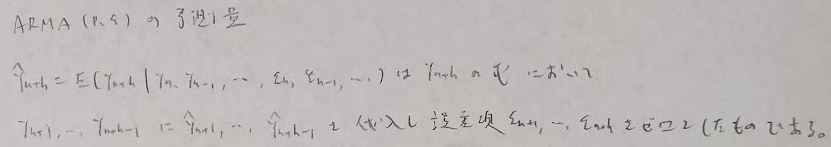 ARMA(p, q) の予測量
ŷₙ₊ₕ = E(yₙ₊ₕ | yₙ, yₙ₋₁, …, εₙ, εₙ₋₁, …) は yₙ₊ₕ の式 において
yₙ₊₁, …, yₙ₊ₕ₋₁ に ŷₙ₊₁, …, ŷₙ₊ₕ₋₁ を代入し 誤差項 εₙ₊₁, …, εₙ₊ₕ をゼロとしたものである。